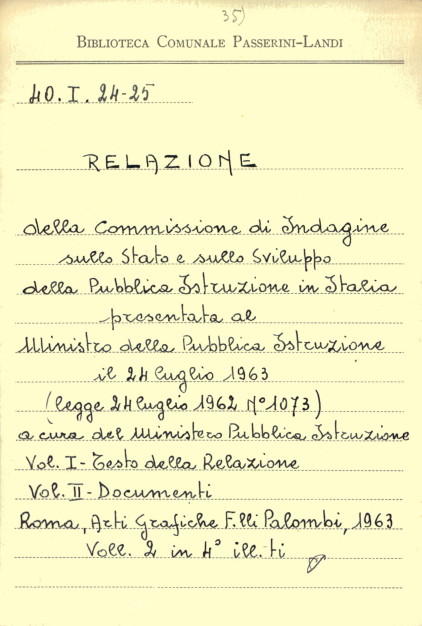 35)
BIBLIOTECA COMUNALE PASSERINI-LANDI
40. I. 24-25
RELAZIONE
della Commissione di Indagine
sullo Stato e sullo Sviluppo
della Pubblica Istruzione in Italia
presentata al
Ministro della Pubblica Istruzione
il 24 luglio 1963
(legge 24 luglio 1962 N° 1073)
a cura del Ministero Pubblica Istruzione
Vol. I - Testo della Relazione
Vol. II - Documenti
Roma, Arti Grafiche F.lli Palombi, 1963
Voll. 2 in 4° ill.ti